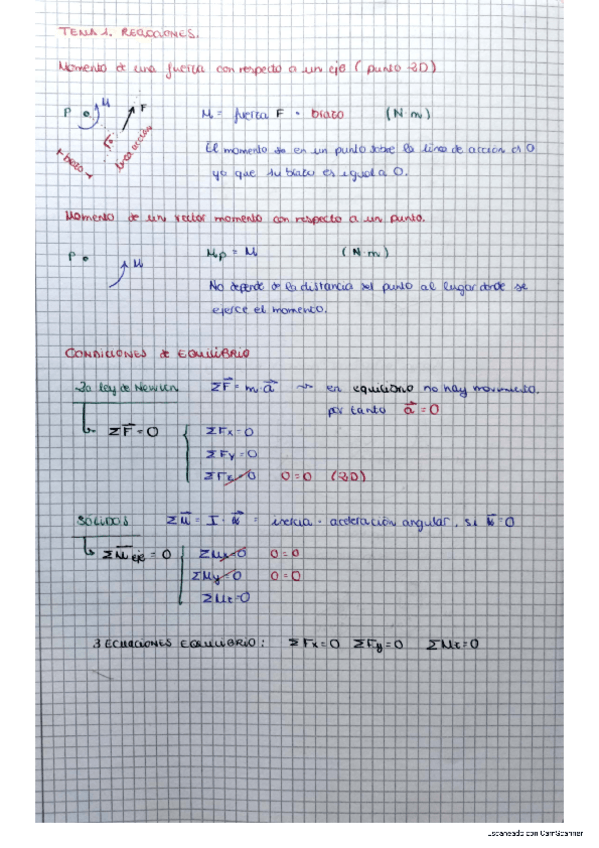 TEMA 1. REACCIONES.
Momento de una fuerza con respecto a un eje ( punto 2D)
P M F
M = fuerza F · brazo (N·m)
brazo línea acción
El momento de en un punto sobre la línea de acción es 0
ya que su brazo es igual a 0.
Momento de un vector momento con respecto a un punto.
P M
Mp = M (N·m)
No depende de la distancia del punto al lugar donde se
ejerce el momento.
CONDICIONES de EQUILIBRIO
2a ley de Newton ΣF⃗ = m·a⃗ ⇝ en equilibrio no hay movimiento.
por tanto a⃗ = 0
ΣF⃗ = 0
ΣFx = 0
ΣFy = 0
ΣFz = 0 0 = 0 (2D)
SÓLIDOS ΣM⃗ = I · α⃗ = inercia · aceleración angular, si α⃗ = 0
ΣM⃗eje = 0
ΣMx = 0 0 = 0
ΣMy = 0 0 = 0
ΣMz = 0
3 ECUACIONES EQUILIBRIO: ΣFx = 0 ΣFy = 0 ΣMz = 0
Escaneado con CamScanner